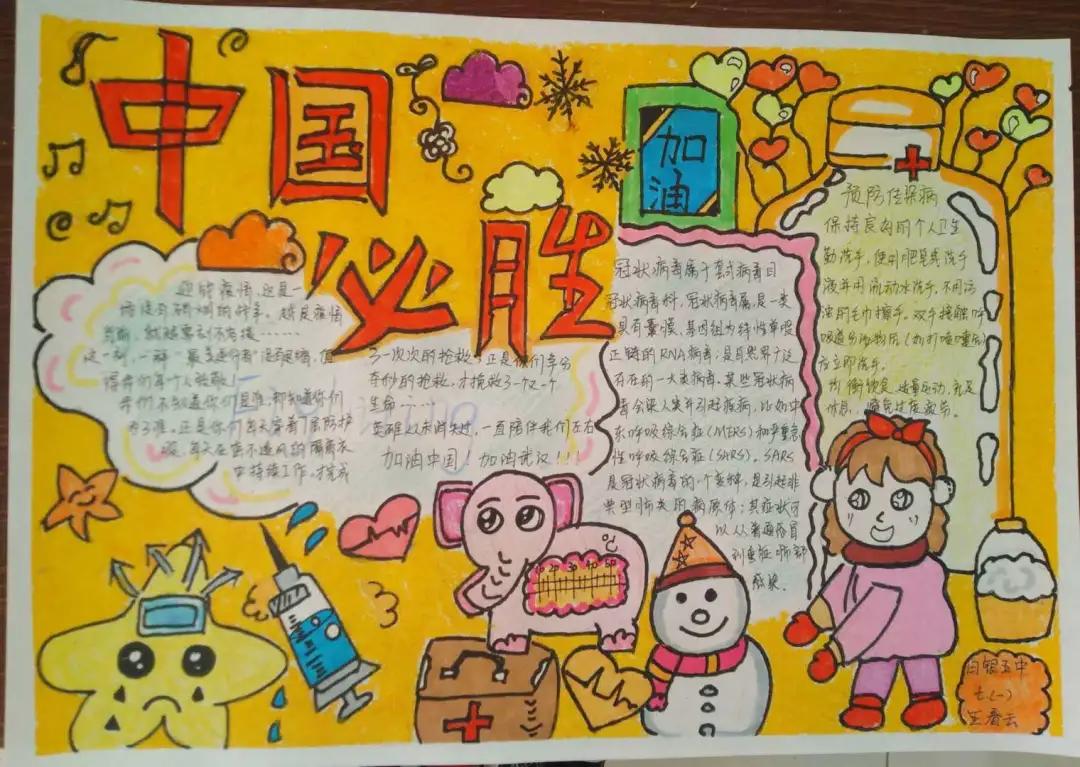 中国
必胜
加
油
迎战疫情,还是一
场没有硝烟的战争。越是疫情
当前,就越要刻不容缓……
这一刻,一群"最美逆行者"没有畏惧,值
得我们每个人致敬!
我们不知道你们是谁,却知道你们
为了谁。正是你们每天穿着厚防护
服,每天在密不透风的隔离衣
中持续工作,才完成
了一次次的抢救,正是你们争分
夺秒的抢救,才挽救了一个个
生命……
英雄从未消失过,一直陪伴我们左右
加油中国!加油武汉!!!
冠状病毒属于套式病毒目
冠状病毒科,冠状病毒属是一类
具有囊膜、基因组为线性单股
正链的RNA病毒,是自然界广泛
存在的一大类病毒。某些冠状病
毒会染人类并引起疾病,比如中
东呼吸综合征(MERS)和严重急
性呼吸综合征(SARS)。SARS
是冠状病毒的一个变种,是引起非
典型肺炎的病原体;其症状可
以从普通感冒
到重症肺部
感染。
预防传染病
保持良好的个人卫生
勤洗手,使用肥皂或洗手
液并用流动水洗手,不用污
浊的毛巾擦手。双手接触呼
吸道分泌物后(如打喷嚏后)
应立即洗手。
均衡饮食、适量运动、充足
休息,避免过度疲劳。
℃
10 20 30 40 50
白银五中
七(一)
王春云